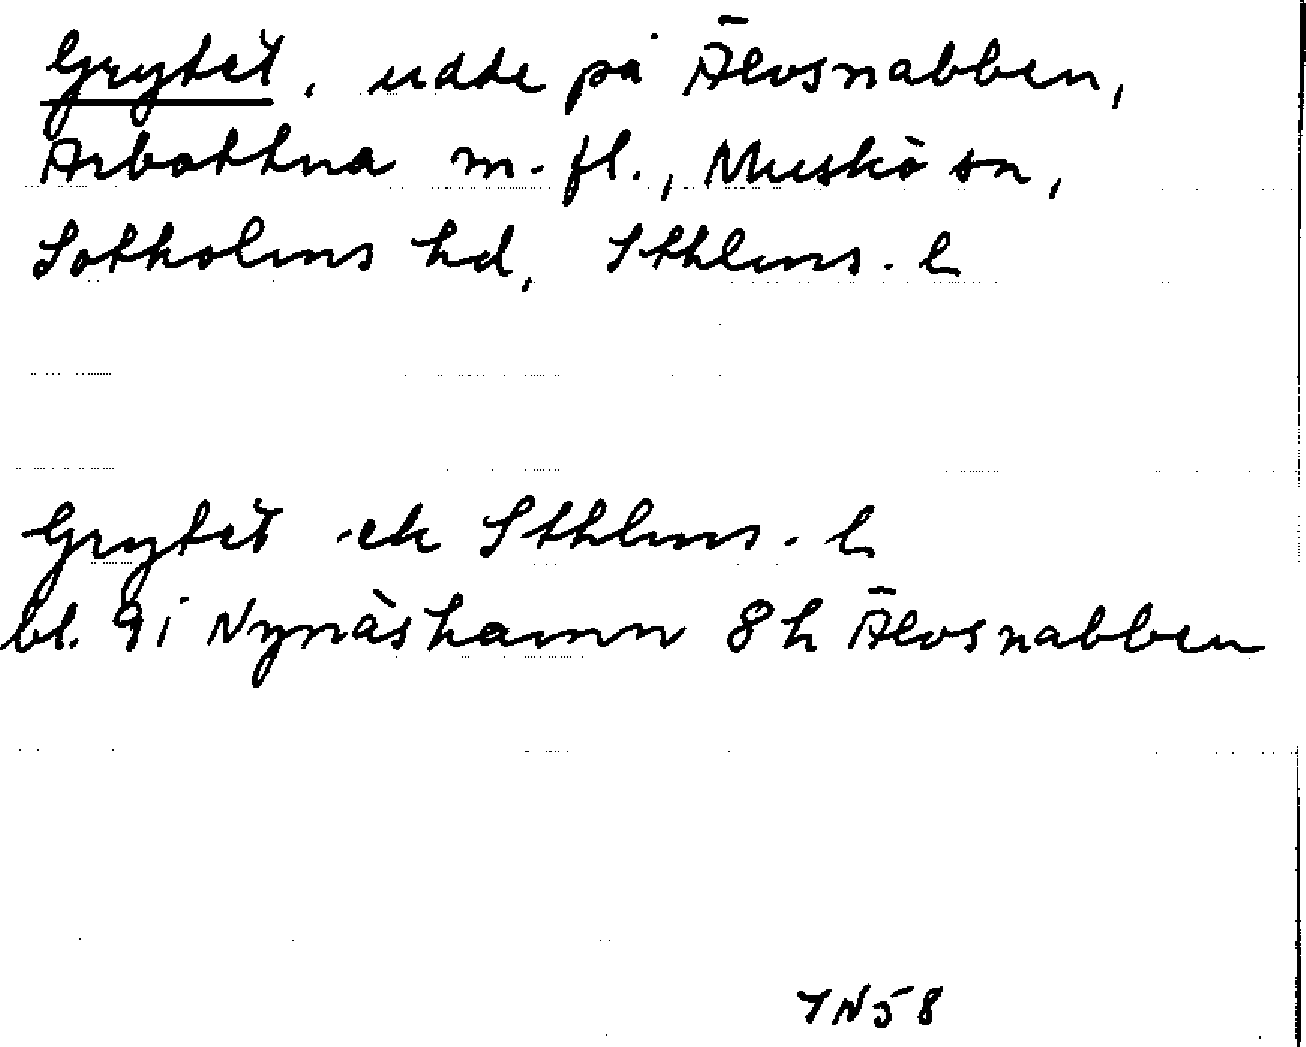 Grytet, udde på Älvsnabben,
Arbottna m.fl., Muskö sn,
Sotholms hd, Sthlms. l
Grytet ek Sthlms. l
bl. 9i Nynäshamn 8h Älvsnabben
TN58